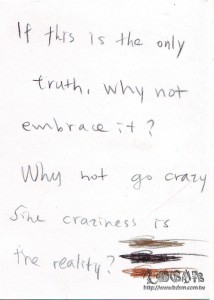 If this is the only
truth, why not
embrace it?
Why not go crazy
Sine craziness is
the reality?